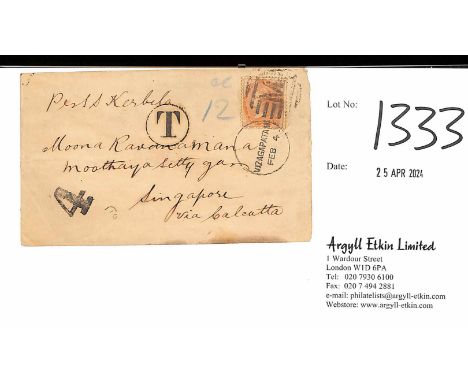 Per S S Kerbela
12
T
Moona Ravanamana
Moothaya Setty gar
Singapore
via Calcutta
VIZAGAPATAM
FEB 4
4
Lot No:
1333
Date:
25 APR 2024
Argyll Etkin Limited
1 Wardour Street
London W1D 6PA
Tel: 020 7930 6100
Fax: 020 7 494 2881
e-mail: philatelists@argyll-etkin.com
Webstore: www.argyll-etkin.com